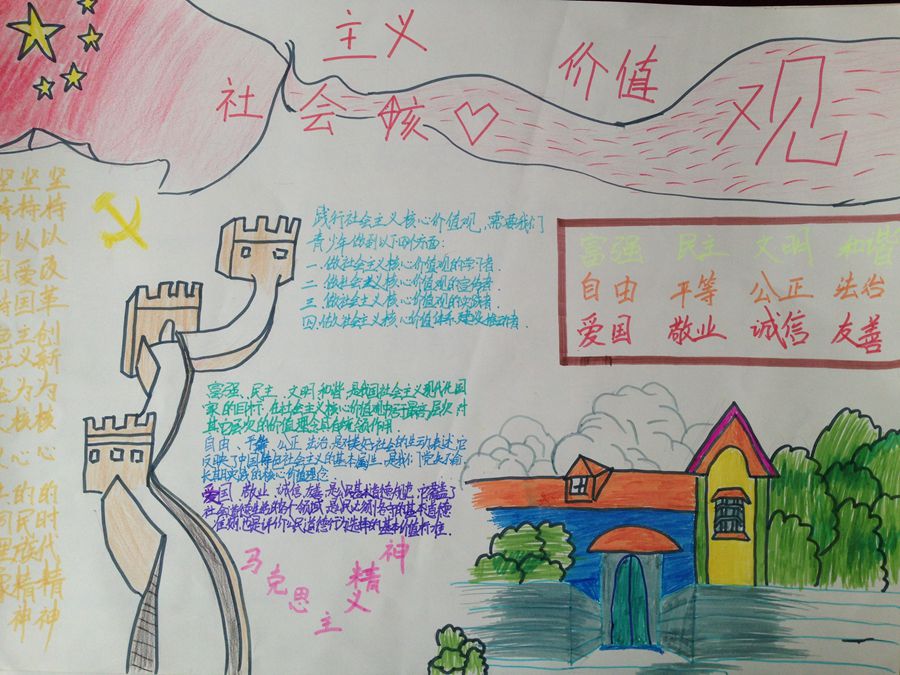 社会主义核心价值观
践行社会主义核心价值观,需要我们
青少年做到以下四个方面:
一.做社会主义核心价值观的学习者.
二.做社会主义核心价值观的宣传者.
三.做社会主义核心价值观的实践者.
四.做社会主义核心价值体系建设推动者.
富强 民主 文明 和谐
自由 平等 公正 法治
爱国 敬业 诚信 友善
富强、民主、文明和谐,是我国社会主义现代化国
家的目标,在社会主义核心价值观中居于最高层次,对
其它层次的价值理念具有统领作用.
自由 平等 公正 法治,是对美好社会的生动表述,它
反映了中国特色社会主义的基本属性,是我们党
长期实践的核心价值理念
爱国 敬业 诚信 友善,是公民基本道德 它覆盖了
社会道德生活的各个领域,是公民必须恪守的基本道德
准则,也是评价公民道德行为选择的基本价值标准.
坚持以改革创新为核心的时代精神
坚持以爱国主义为核心的民族精神
马克思主义精神